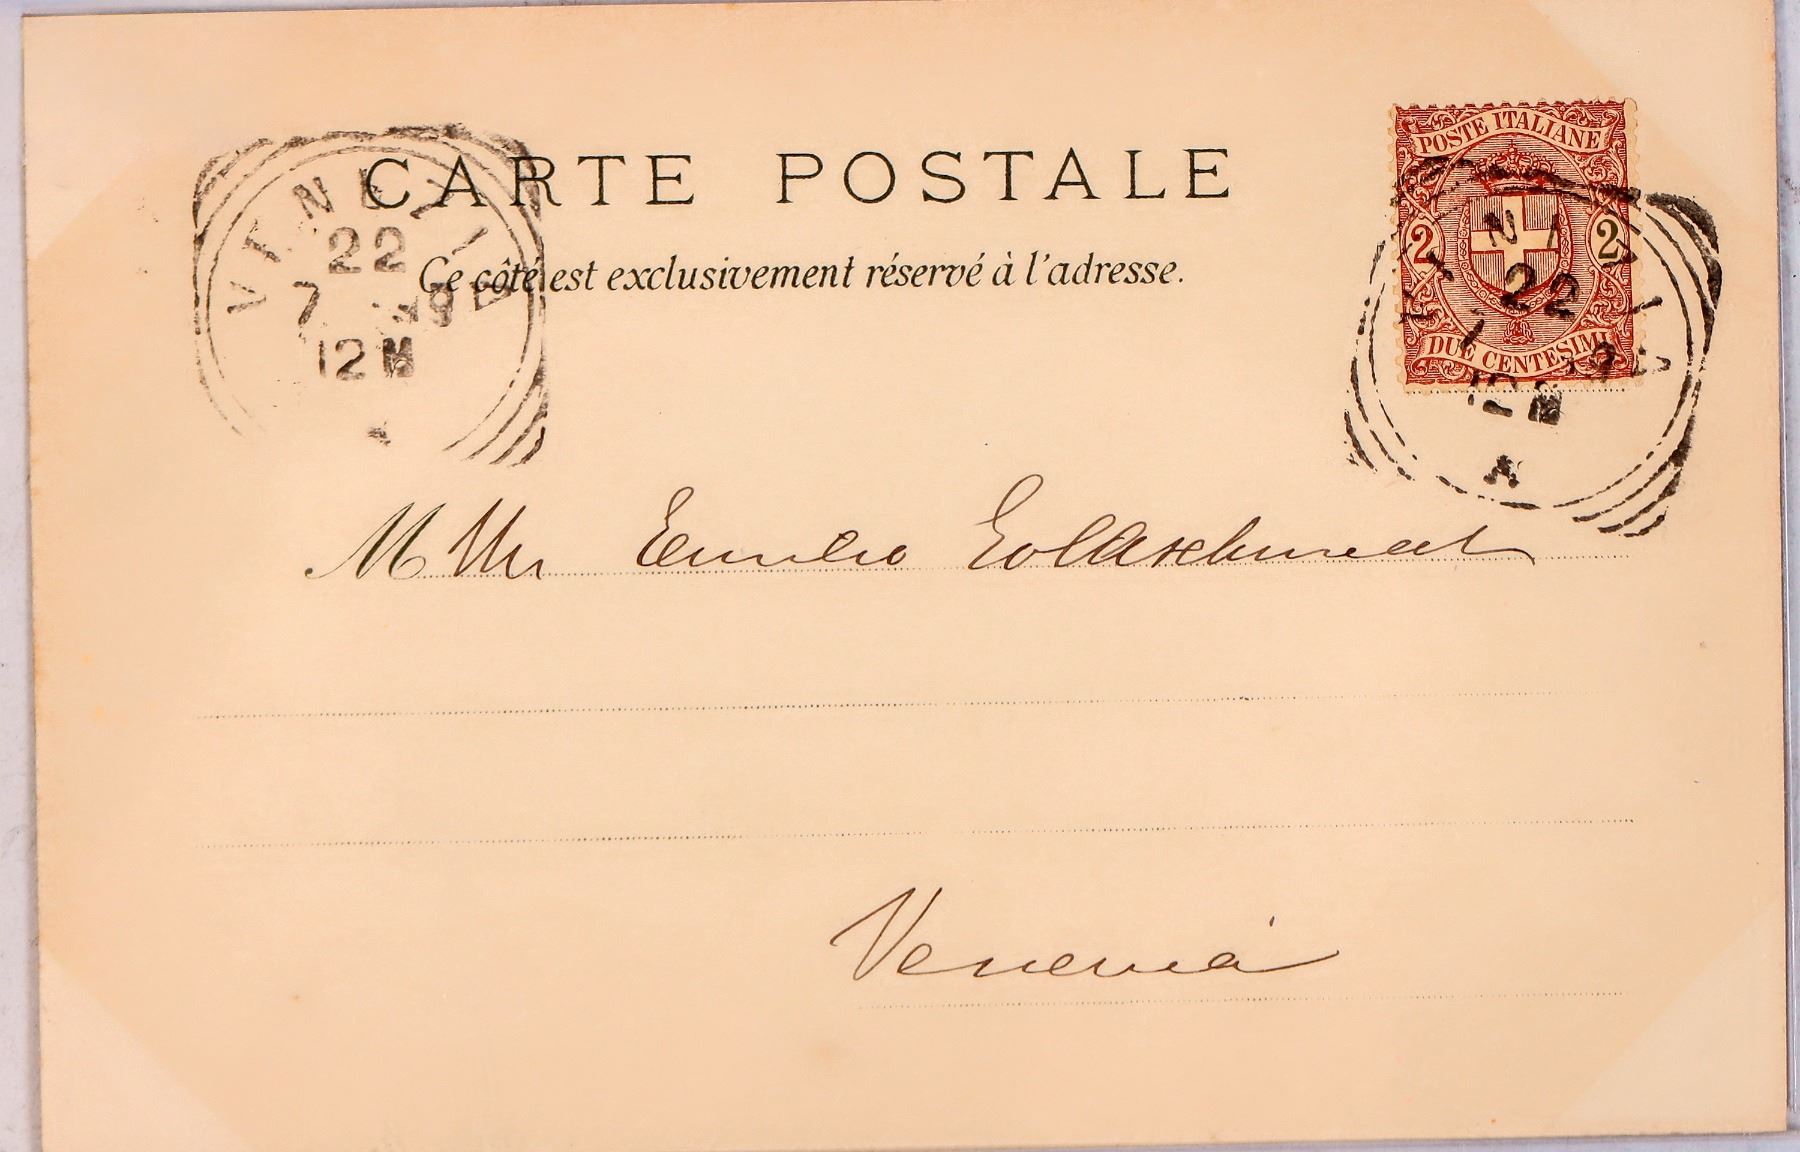 CARTE POSTALE
Ce côté est exclusivement réservé à l'adresse.
VENEZIA
22
7 98
12 M
POSTE ITALIANE
2 2
DUE CENTESIMI
VENEZIA
22
7 98
12 M
Emilio
Venezia